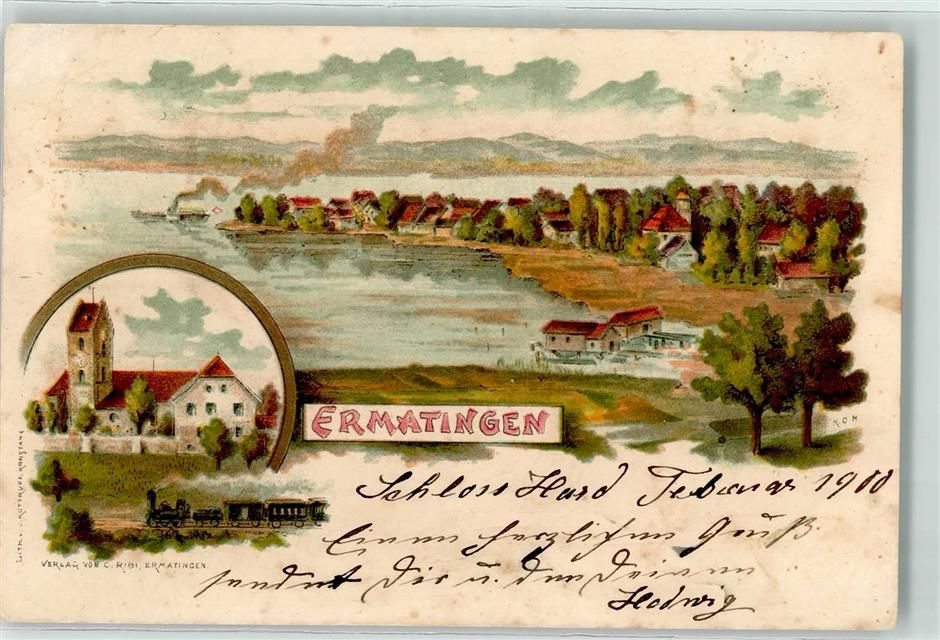 ERMATINGEN
K.O.H.
Schloss Hard Februar 1900
Einen herzlichen Gruß
sendet Dir u. den Deinen
Hedwig
LITH. v. J. RÜTTRUFF, KONSTANZ
VERLAG VON C. RIBI, ERMATINGEN.